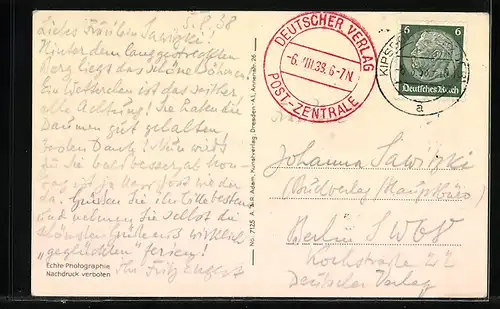 5.8.38
Liebes Fräulein Sawizki!
Hinter dem langgestreckten
Berg liegt das schöne Böhmen!
Ein Wetterchen ist das seither
alle Achtung! Sie haben die
Daumen gut gehalten
besten Dank! Nun wird
für Sie
ist ja Herr wieder
da. Grüssen Sie bestens
und nehmen Sie selbst die
schönsten Grüsse wirklich
"geglückten" Ferien!
Ihr Fritz
Echte Photographie
Nachdruck verboten
No. 7125 A. & R. Adam, Kunstverlag, Dresden-A.1, Annenstr. 26
DEUTSCHER VERLAG
-6. VIII. 38. 6-7 N
POST-ZENTRALE
6 6
Deutsches Reich
a
Johanna Sawizki
(Buchverlag Hauptbüro)
Berlin SW 68
Kochstraße 22
Deutscher Verlag